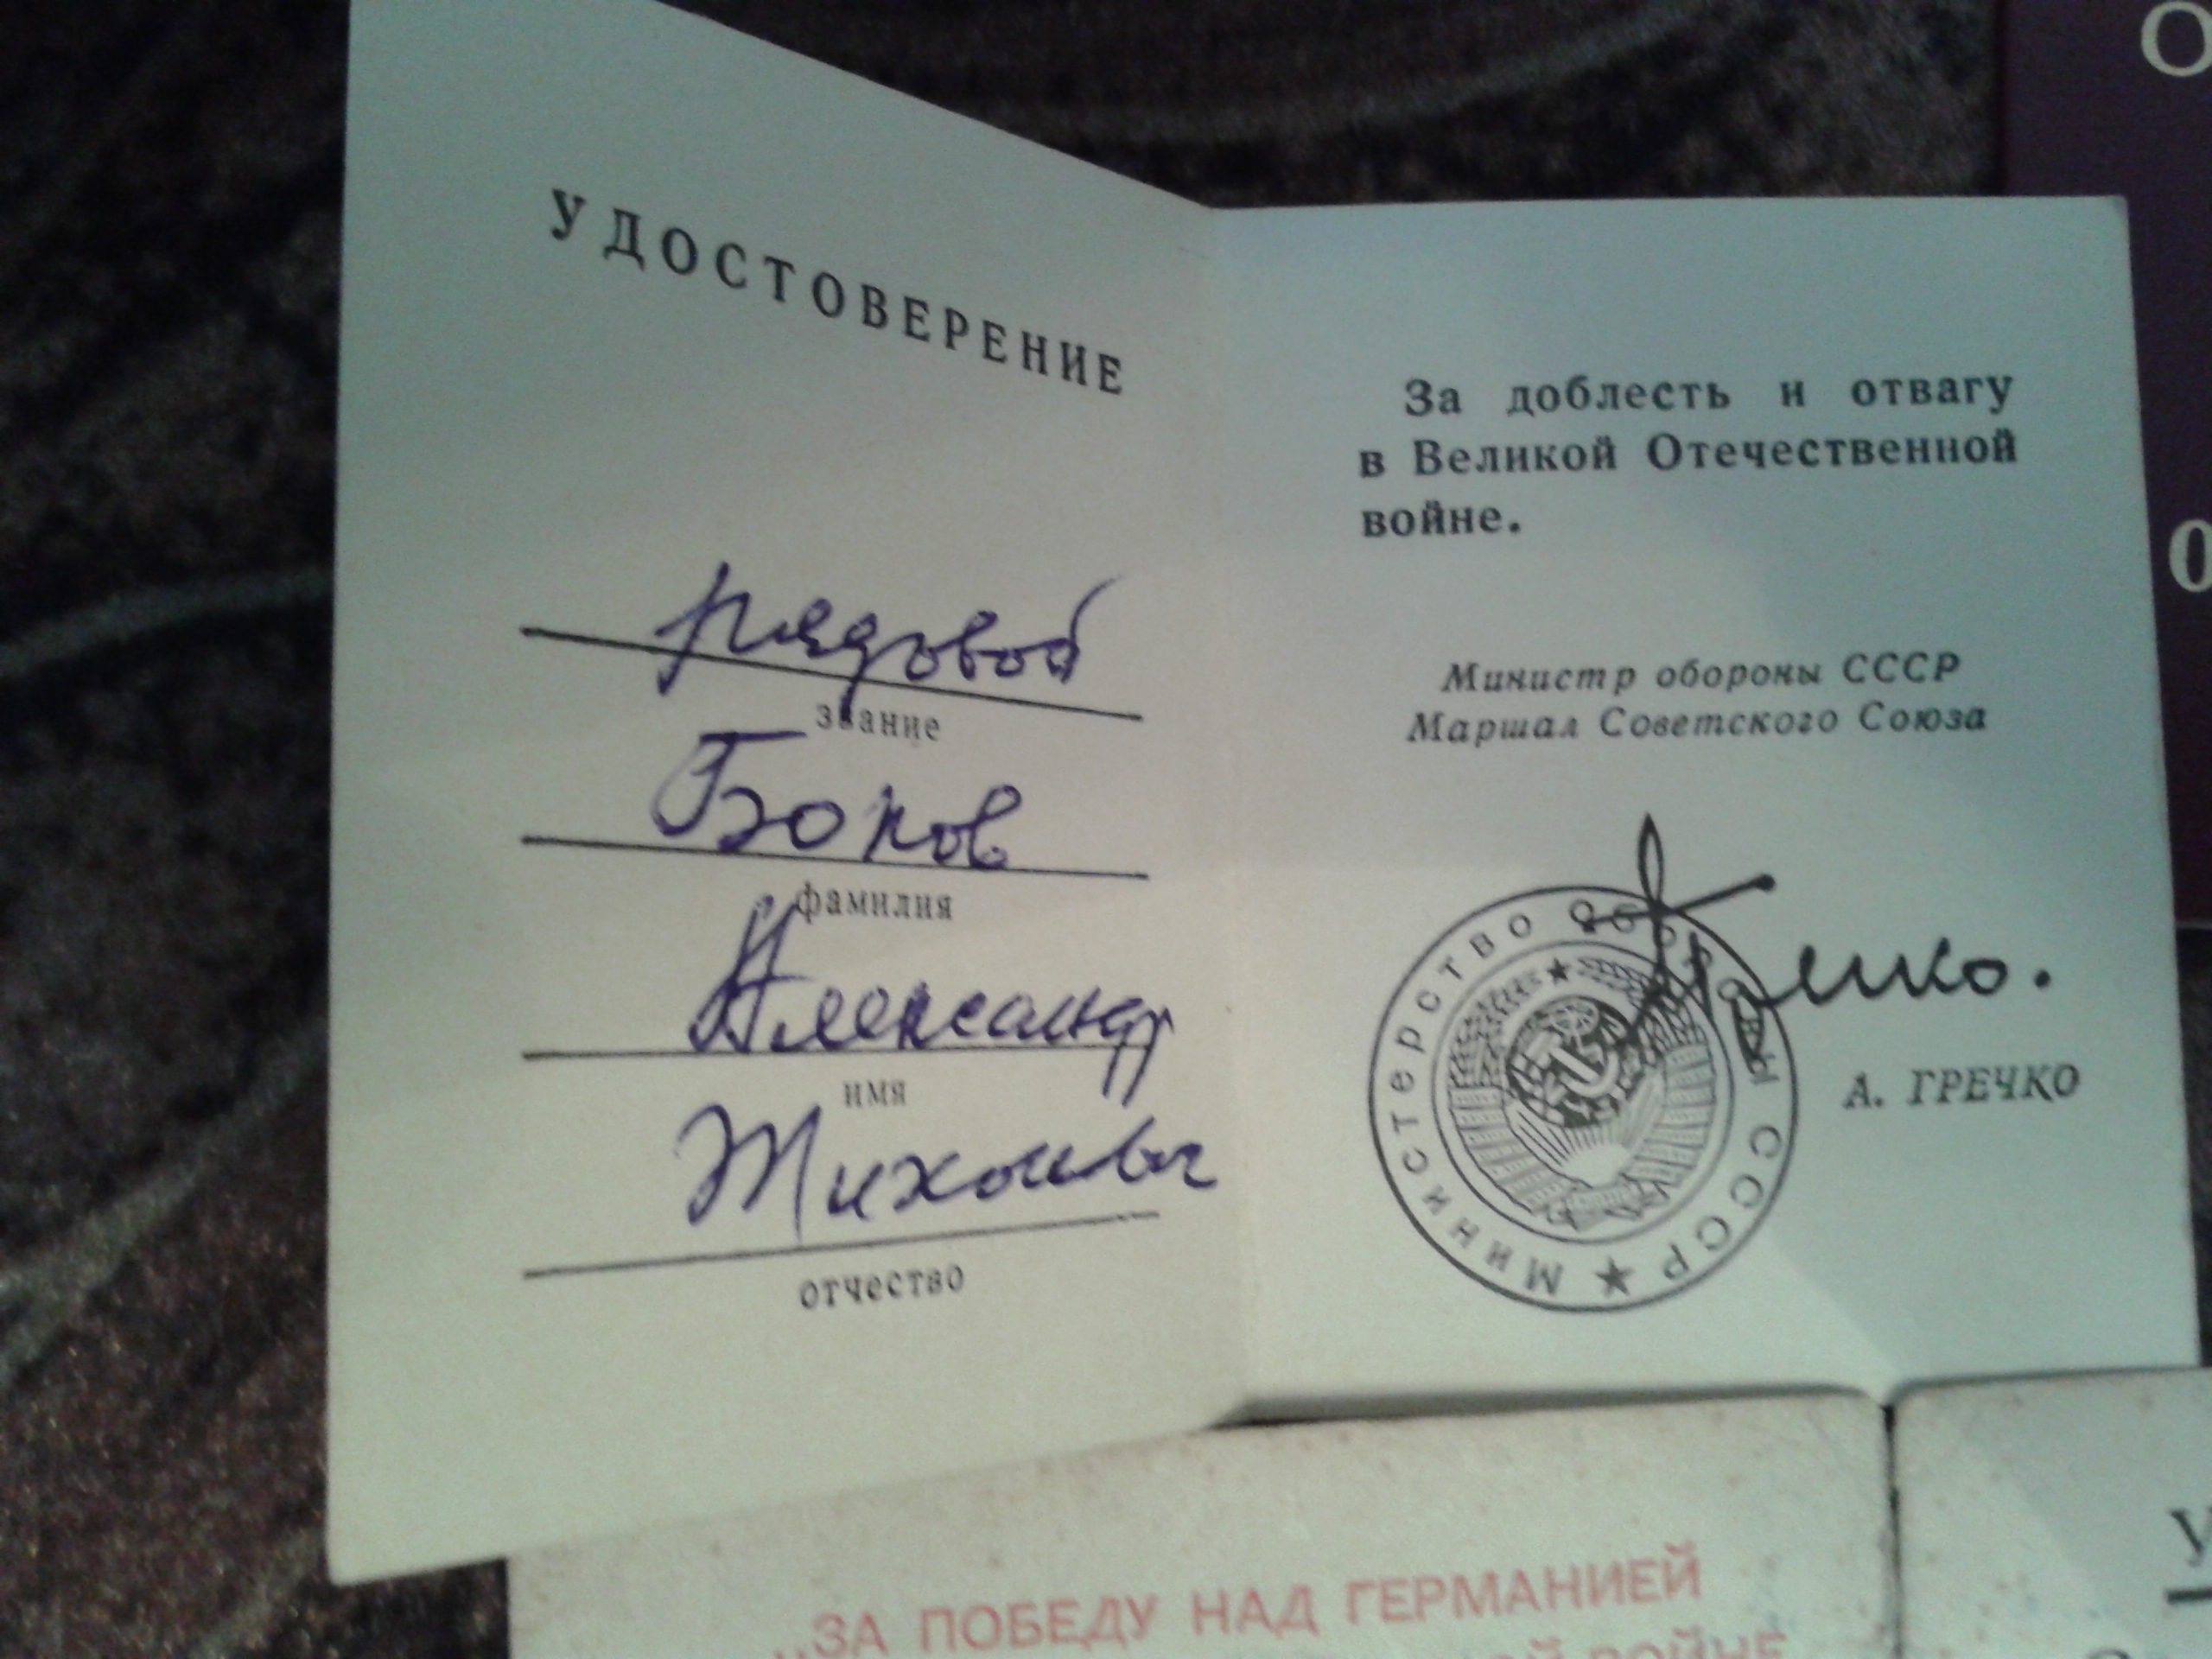 УДОСТОВЕРЕНИЕ
рядовой
звание
Боков
фамилия
Александр
имя
Тихонович
отчество
За доблесть и отвагу
в Великой Отечественной
войне.
Министр обороны СССР
Маршал Советского Союза
Гречко.
А. ГРЕЧКО
МИНИСТЕРСТВО ОБОРОНЫ СССР
„ЗА ПОБЕДУ НАД ГЕРМАНИЕЙ
ВОЙНЕ